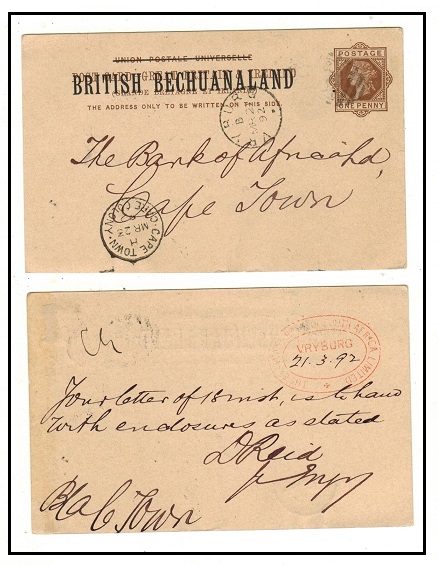 UNION POSTALE UNIVERSELLE
BRITISH BECHUANALAND
THE ADDRESS ONLY TO BE WRITTEN ON THIS SIDE.
POSTAGE
ONE PENNY
VRYBURG
MR 21
92
The Bank of Africa Ld,
Cape Town
CAPE TOWN · CAPE COLONY
H
MR 23
AFRICA LIMITED
VRYBURG
21.3.92
Your letter of 18 inst, is to hand
with enclosures as stated
D Reid
C Town